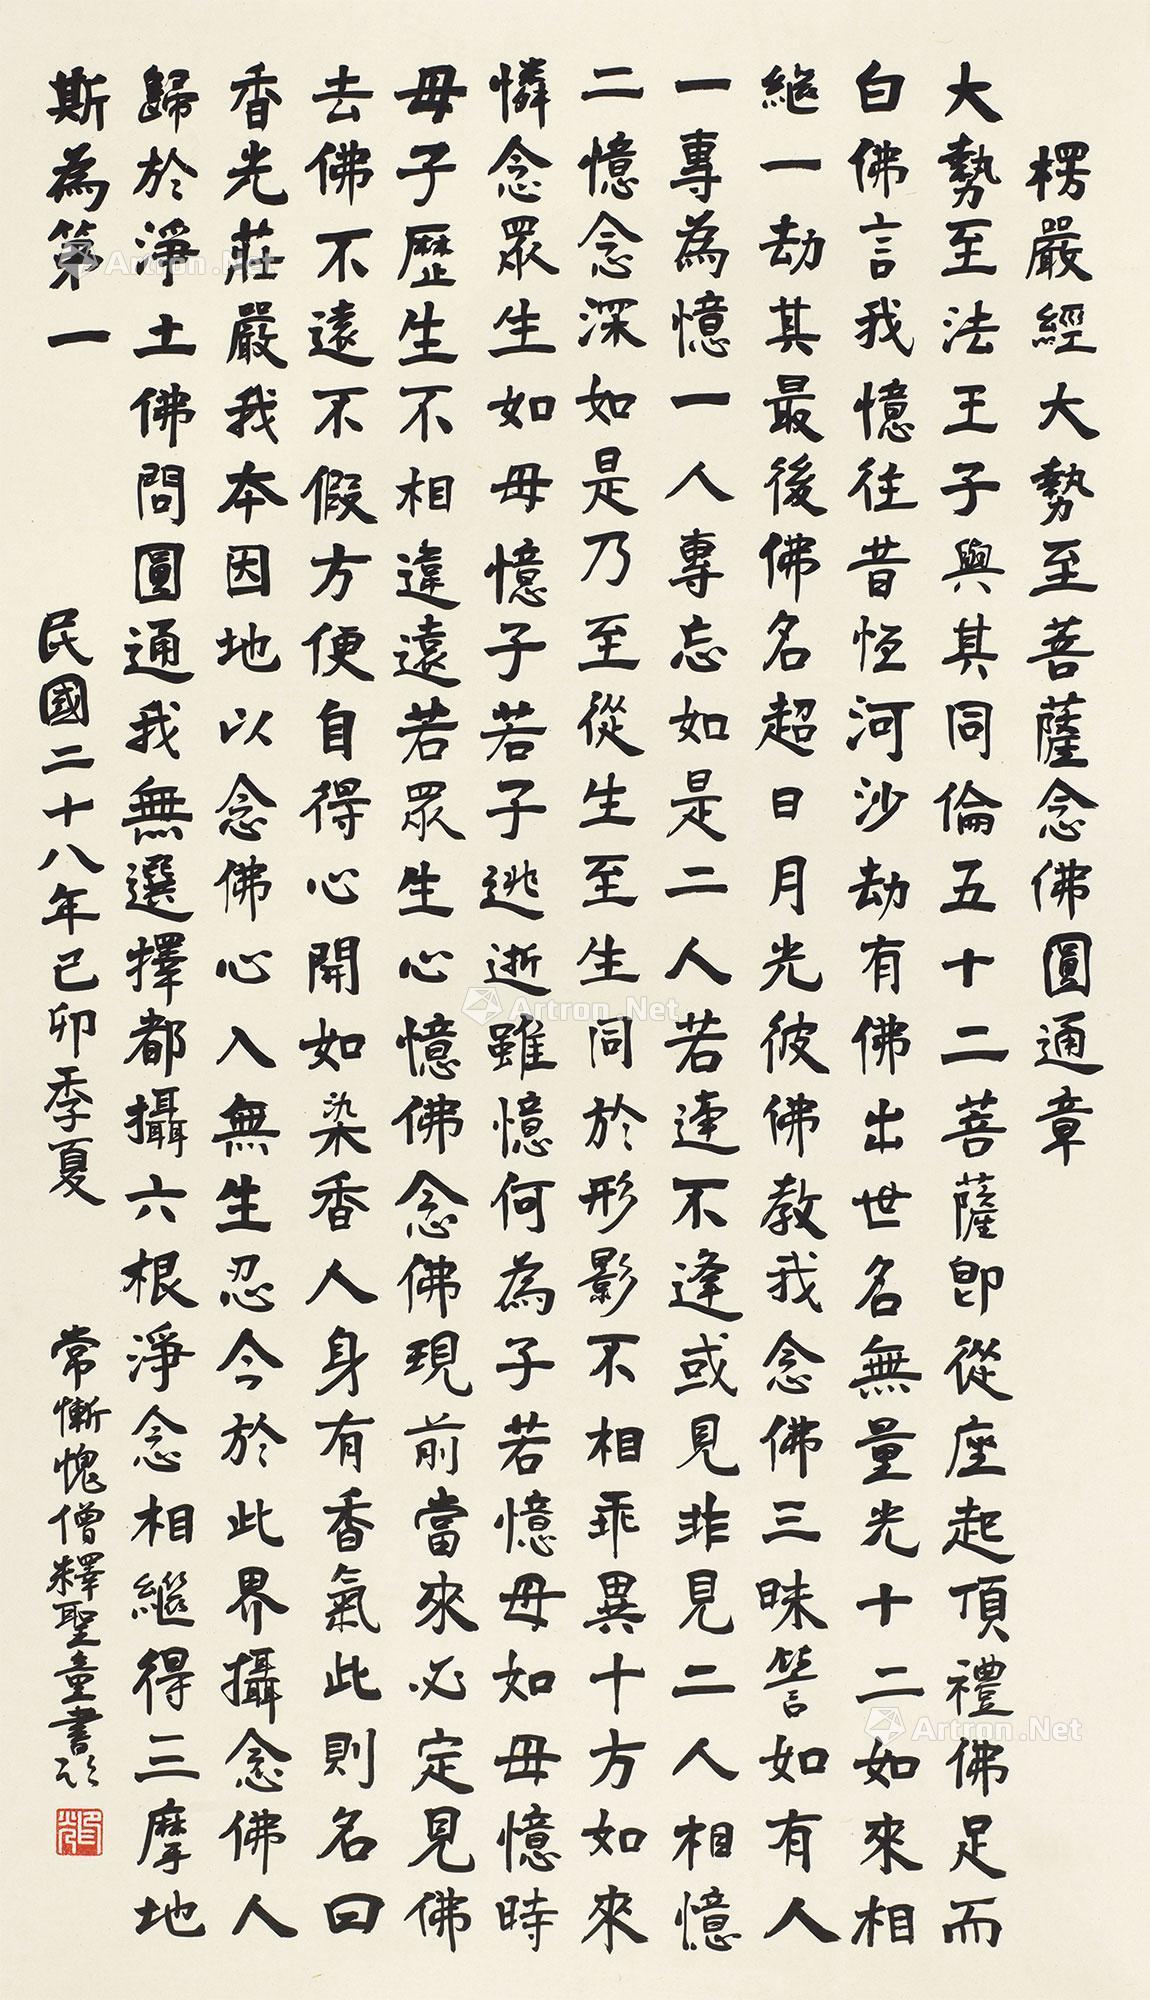 楞嚴經大勢至菩薩念佛圓通章
大勢至法王子與其同倫五十二菩薩即從座起頂禮佛足而
白佛言我憶往昔恆河沙劫有佛出世名無量光十二如來相
繼一劫其最後佛名超日月光彼佛教我念佛三昧譬如有人
一專為憶一人專忘如是二人若逢不逢或見非見二人相憶
二憶念深如是乃至從生至生同於形影不相乖異十方如來
憐念眾生如母憶子若子逃逝雖憶何為子若憶母如母憶時
母子歷生不相違遠若眾生心憶佛念佛現前當來必定見佛
去佛不遠不假方便自得心開如染香人身有香氣此則名曰
香光莊嚴我本因地以念佛心入無生忍今於此界攝念佛人
歸於淨土佛問圓通我無選擇都攝六根淨念相繼得三摩地
斯為第一
民國二十八年己卯季夏
常慚愧僧釋聖量書
Artron.Net
Artron.Net
Artron.Net